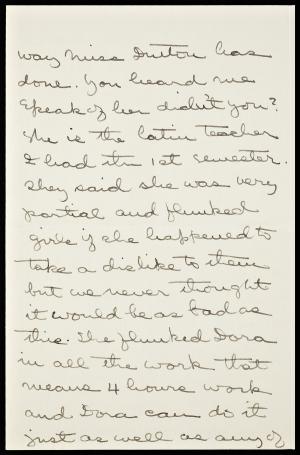 way Miss Dutton has
done. You heard me
speak of her didn't you?
She is the latin teacher
I had the 1st semester.
They said she was very
partial and flunked
girls if she happened to
take a dislike to them
but we never thought
it would be as bad as
this. She flunked Dora
in all the work that
means 4 hours work
and Dora can do it
just as well as any of